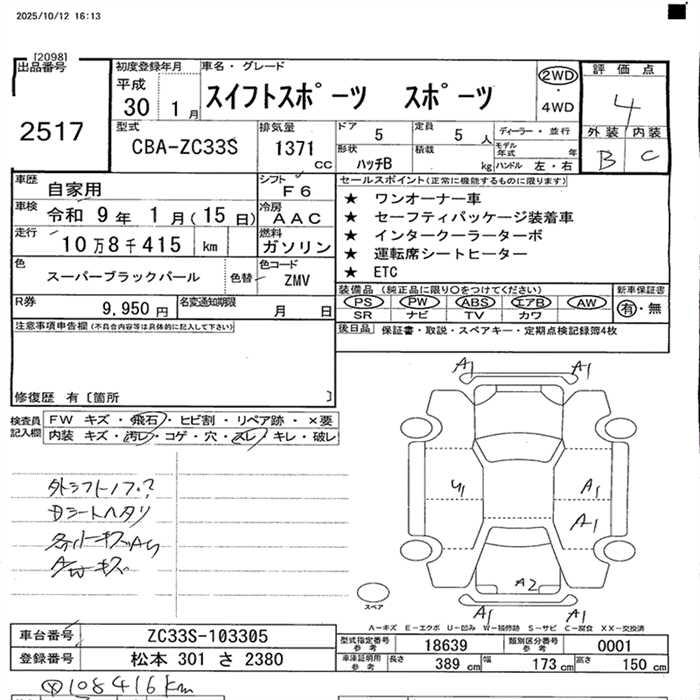 2025/10/12 16:13
[2098]
出品番号
2517
初度登録年月
平成
30 1月
車名・グレード
スイフトスポーツ スポーツ
2WD
・
4WD
評価点
4
外装 内装
B C
型式
CBA-ZC33S
排気量
1371
CC
ドア 5
定員 5 人
形状
ハッチB
積載
kg
ディーラー・並行
モデル年式 年
ハンドル 左・右
車歴
自家用
シフト
F6
車検
令和 9年 1月(15日)
冷房
AAC
走行
10万8千415 km
燃料
ガソリン
色
スーパーブラックパール
色替
色コード
ZMV
R券
9,950円
名変通知期限
月 日
セールスポイント(正常に機能するものに限ります)
★ ワンオーナー車
★ セーフティパッケージ装着車
★ インタークーラーターボ
★ 運転席シートヒーター
★ ETC
装備品(純正品に限り○をつけてください)
PS PW ABS エアB AW
SR ナビ TV カワ
新車保証書
有・無
後日品 保証書・取説・スペアキー・定期点検記録簿4枚
注意事項申告欄(不具合内容等は具体的に記入して下さい)
修復歴 有〔箇所 〕
検査員記入欄
FW キズ・飛石・ヒビ割・リペア跡・×要
内装 キズ・汚レ・コゲ・穴・スレ・キレ・破レ
外シフトノブ?
Dシートヘタリ
AWキズ
A1 A1
A1
A1
A2
A1 A1
スペア
A-キズ E-エクボ U-凹み W-補修跡 S-サビ C-腐食 XX-交換済
車台番号 ZC33S-103305
登録番号 松本 301 さ 2380
型式指定番号参考 18639
類別区分番号参考 0001
車庫証明用参考 長さ 389 cm 幅 173 cm 高さ 150 cm
108416km